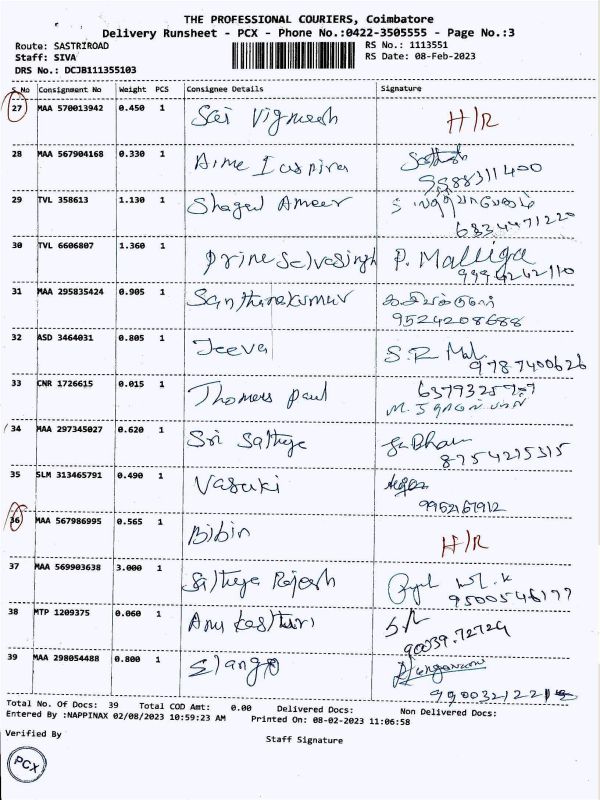 THE PROFESSIONAL COURIERS, Coimbatore
Delivery Runsheet - PCX - Phone No.:0422-3505555 - Page No.:3
Route: SASTRIROAD
RS No.: 1113551
Staff: SIVA
RS Date: 08-Feb-2023
DRS No.: DCJB111355103
S.No Consignment No Weight PCS Consignee Details Signature
27 MAA 570013942 0.450 1 Sai Vignesh H/R
28 MAA 567904168 0.330 1 Sathish
29 TVL 358613 1.130 1 Ameer
6834471220
30 TVL 6606807 1.360 1 Prince Selvasingh P. Malliga
31 MAA 295835424 0.905 1 Santhanakumar
9524208688
32 ASD 3464031 0.805 1 Jeeva S.R
9787400626
33 CNR 1726615 0.015 1 Thomas Paul
34 MAA 297345027 0.620 1 Sri Sathya
8754215315
35 SLM 313465791 0.490 1 Vasuki
9952167912
36 MAA 567986995 0.565 1 Bibin H/R
37 MAA 569903638 3.000 1 Sathya Rajesh
9500546177
38 MTP 1209375 0.060 1 Anu Kasthuri
90039.72729
39 MAA 298054488 0.800 1 Elango
Total No. Of Docs: 39 Total COD Amt: 0.00 Delivered Docs: Non Delivered Docs:
Entered By :NAPPINAX 02/08/2023 10:59:23 AM Printed On: 08-02-2023 11:06:58
Verified By
Staff Signature
PCX